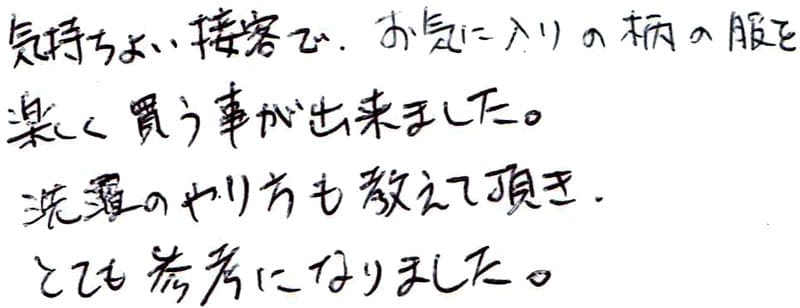 気持ちよい接客で、お気に入りの柄の服を
楽しく買う事が出来ました。
洗濯のやり方も教えて頂き、
とても参考になりました。